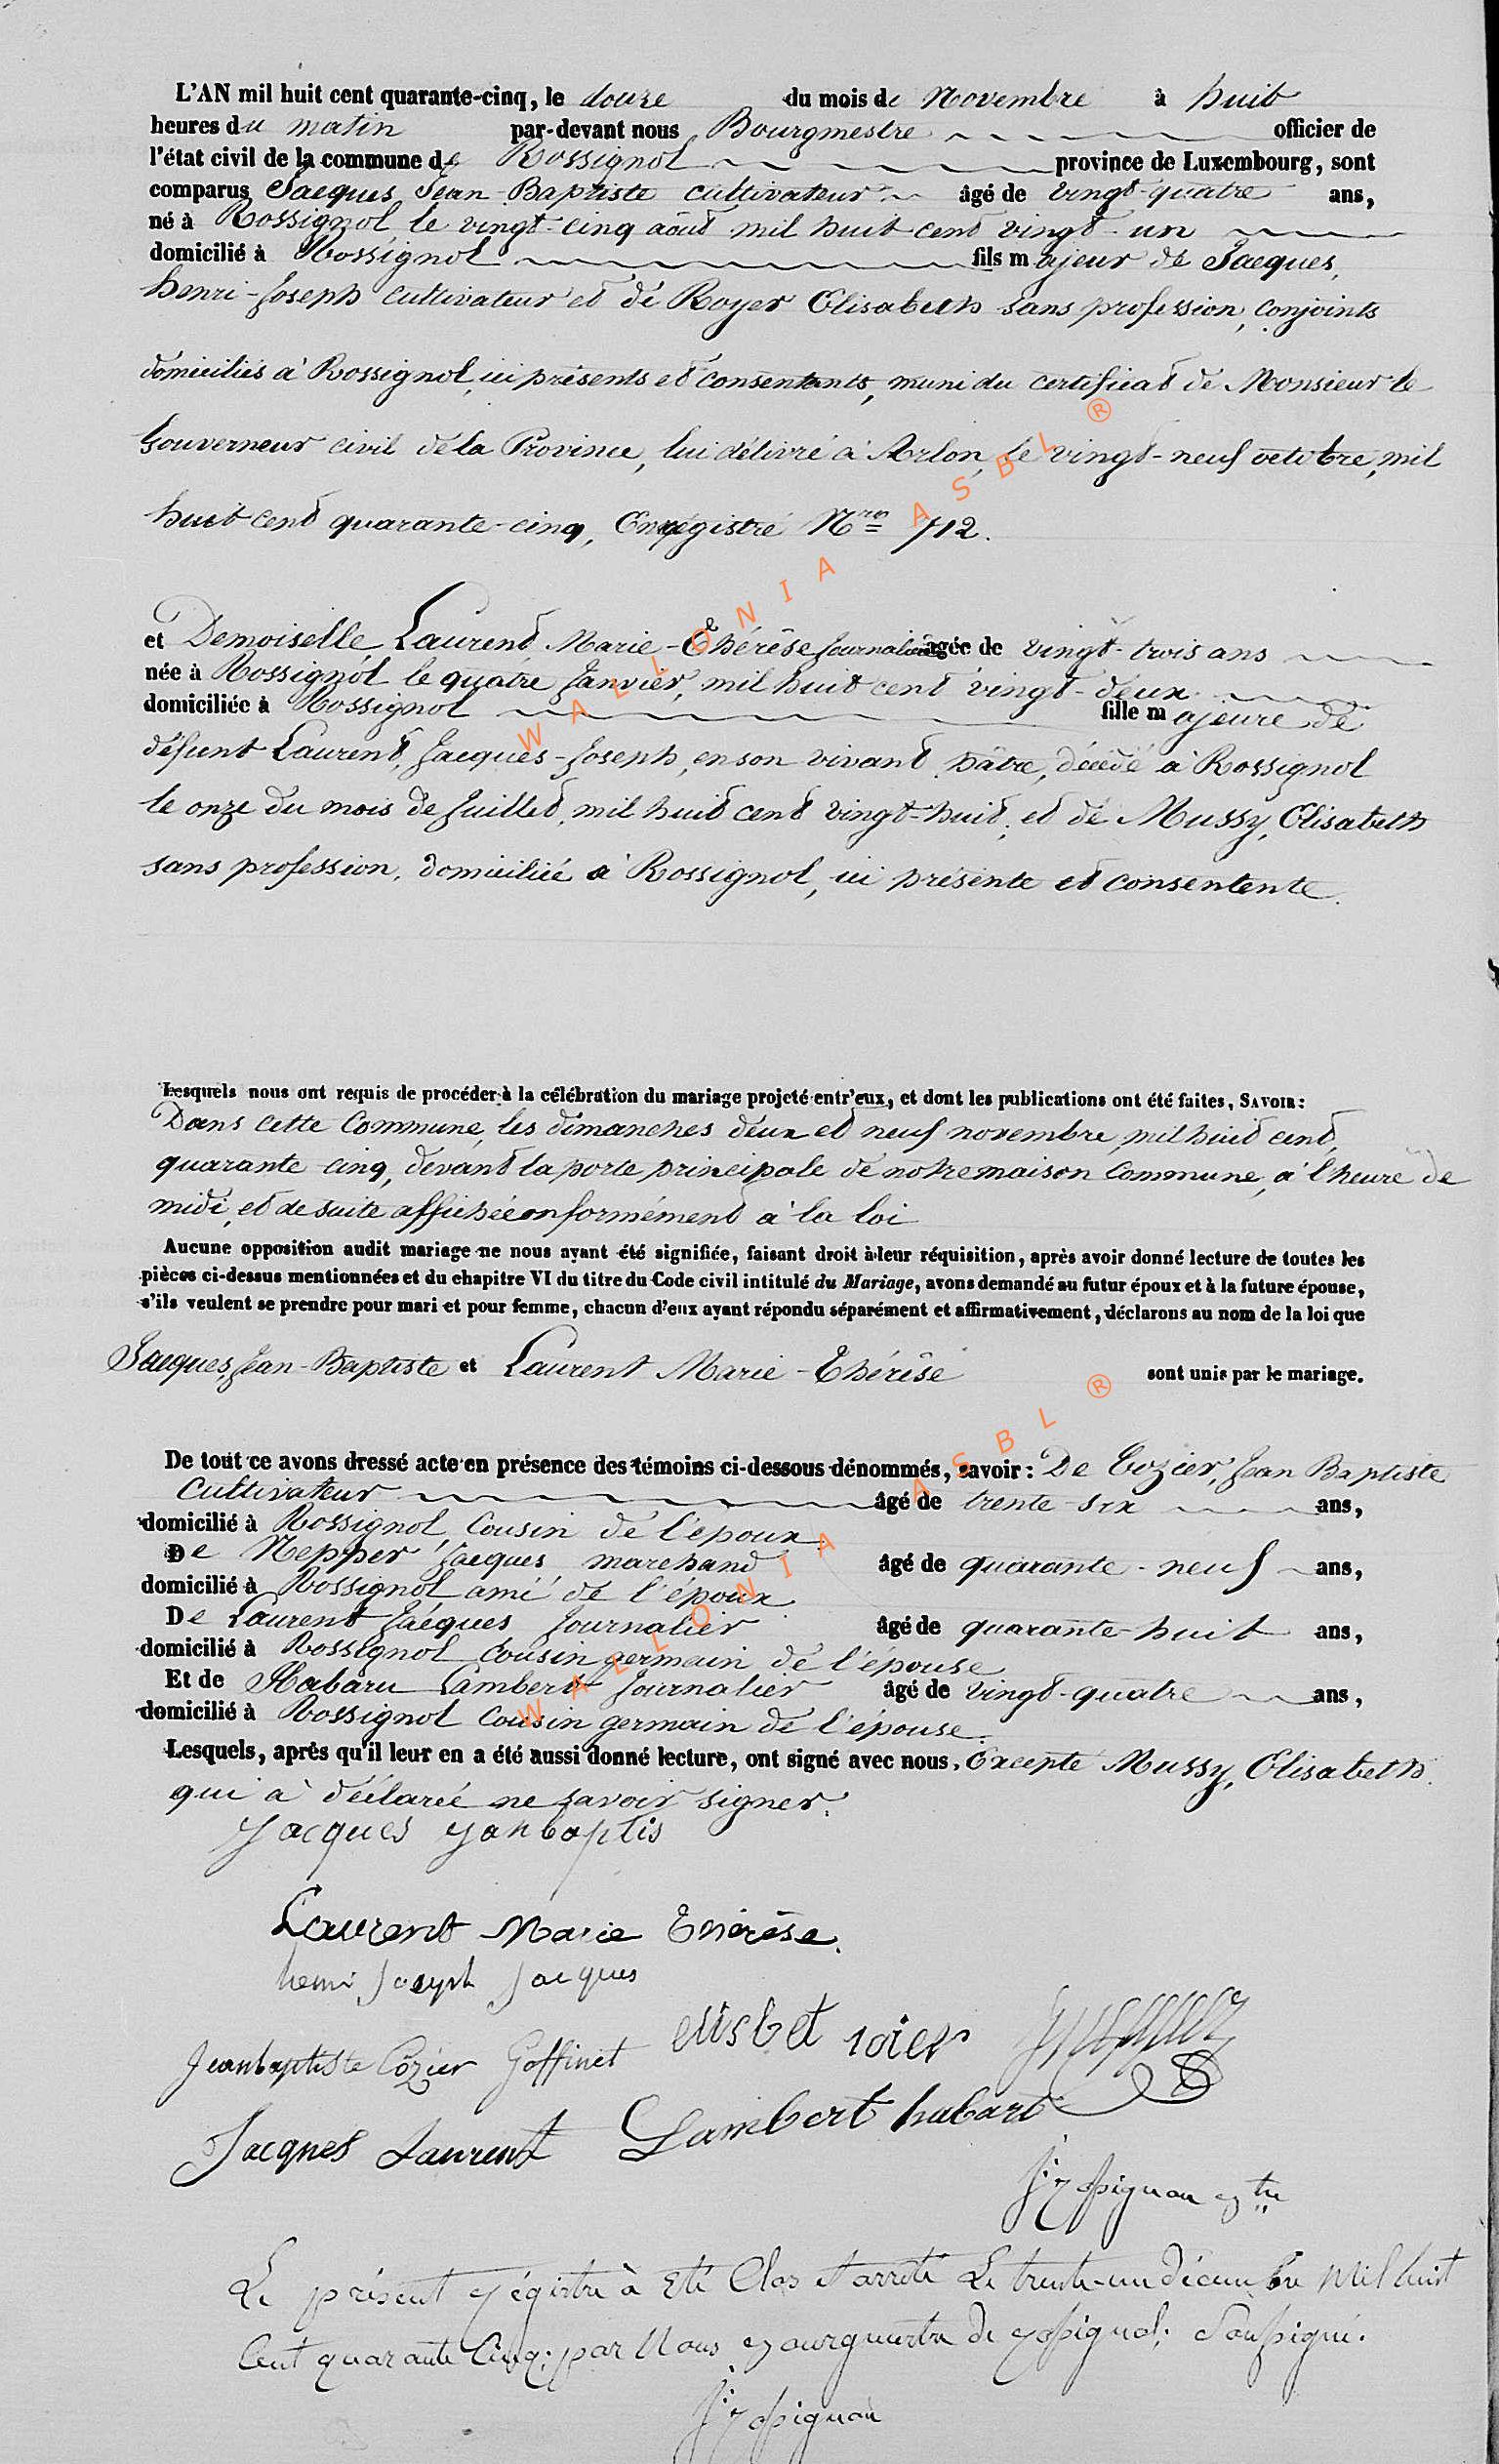 L'AN mil huit cent quarante-cinq, le douze du mois de Novembre à huit
heures du matin par-devant nous Bourgmestre officier de
l'état civil de la commune de Rossignol province de Luxembourg, sont
comparus Jacques Jean-Baptiste cultivateur âgé de vingt-quatre ans,
né à Rossignol le vingt-cinq août mil huit cent vingt-un
domicilié à Rossignol fils majeur de Jacques,
henri-Joseph cultivateur et de Royer Elisabeth sans profession, conjoints
domiciliés à Rossignol, ici présents et consentants, muni du certificat de Monsieur le
Gouverneur civil de la Province, lui délivré à Arlon, le vingt-neuf octobre, mil
huit cent quarante-cinq, Enrégistré Nro 712.
et Demoiselle Laurent Marie-Thérèse Journalière âgée de vingt-trois ans
née à Rossignol le quatre Janvier, mil huit cent vingt-deux
domiciliée à Rossignol fille majeure de
défunt Laurent, Jacques-Joseph, en son vivant pâtre, décédé à Rossignol
le onze du mois de Juillet, mil huit cent vingt-huit, et de Mussy, Elisabeth
sans profession, domiciliée à Rossignol, ici présente et consentente.
Lesquels nous ont requis de procéder à la célébration du mariage projeté entr'eux, et dont les publications ont été faites, SAVOIR:
Dans cette Commune, les dimanches deux et neuf novembre, mil huit cent,
quarante-cinq, devant la porte principale de notre maison Commune, à l'heure de
midi, et de suite affichée conformément à la loi
Aucune opposition audit mariage ne nous ayant été signifiée, faisant droit à leur réquisition, après avoir donné lecture de toutes les
pièces ci-dessus mentionnées et du chapitre VI du titre du Code civil intitulé du Mariage, avons demandé au futur époux et à la future épouse,
s'ils veulent se prendre pour mari et pour femme, chacun d'eux ayant répondu séparément et affirmativement, déclarons au nom de la loi que
Jacques, Jean-Baptiste et Laurent Marie-Thérèse sont unis par le mariage.
De tout ce avons dressé acte en présence des témoins ci-dessous dénommés, savoir: De Cozier, Jean Baptiste
Cultivateur âgé de trente-six ans,
domicilié à Rossignol, Cousin de l'époux
De Nepper Jacques, marchand âgé de quarante-neuf ans,
domicilié à Rossignol ami de l'époux
De Laurent Jacques Journalier âgé de quarante-huit ans,
domicilié à Rossignol cousin germain de l'épouse
Et de Habaru Lambert Journalier âgé de vingt-quatre ans,
domicilié à Rossignol Cousin germain de l'épouse
Lesquels, après qu'il leur en a été aussi donné lecture, ont signé avec nous. Excepté Mussy, Elisabeth
qui à déclarée ne savoir signer.
Jacques Janbaptis
Laurent Marie Thérèse.
henri Joseph Jacques
elisbet roier
Jeanbaptiste Cozier Goffinet
Jacques Laurent Lambert habart
Le présent régistre à été Clos et arrêté Le trente-un décembre Mil huit
Cent quarante Cinq; par Nous Bourgmestre de Rossignol; Soussigné.
WALLONIA ASBL ®
WALLONIA ASBL ®